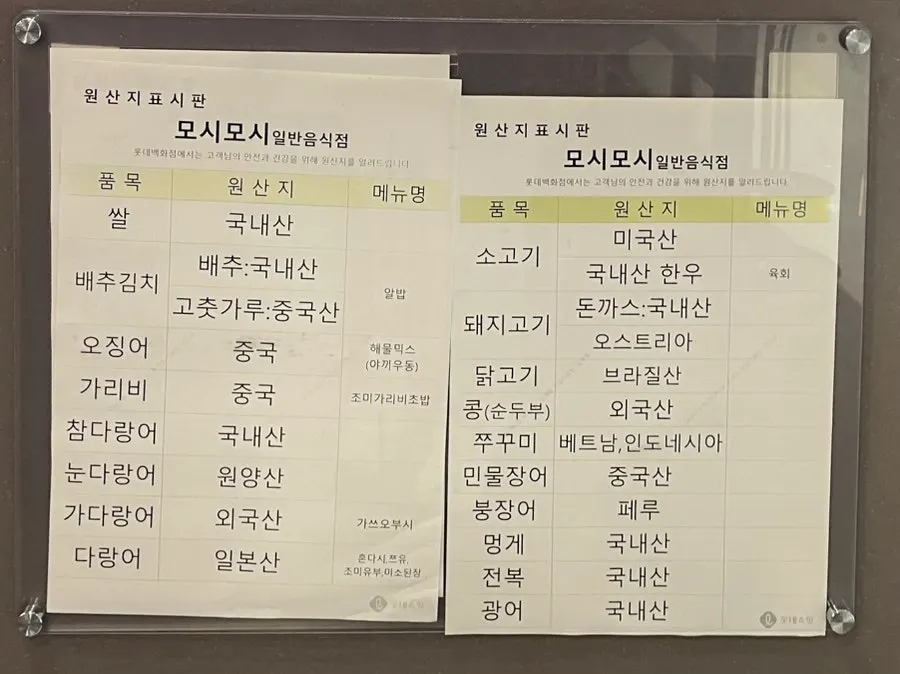 원산지표시판
모시모시일반음식점
롯데백화점에서는 고객님의 안전과 건강을 위해 원산지를 알려드립니다
품목 원산지 메뉴명
쌀 국내산
배추김치 배추:국내산 알밥
고춧가루:중국산
오징어 중국 해물믹스
(야끼우동)
가리비 중국 조미가리비초밥
참다랑어 국내산
눈다랑어 원양산
가다랑어 외국산 가쓰오부시
다랑어 일본산 혼다시,쯔유,
조미유부,미소된장
롯데쇼핑
원산지표시판
모시모시일반음식점
롯데백화점에서는 고객님의 안전과 건강을 위해 원산지를 알려드립니다
품목 원산지 메뉴명
소고기 미국산
국내산 한우 육회
돼지고기 돈까스:국내산
오스트리아
닭고기 브라질산
콩(순두부) 외국산
쭈꾸미 베트남,인도네시아
민물장어 중국산
붕장어 페루
멍게 국내산
전복 국내산
광어 국내산
롯데쇼핑